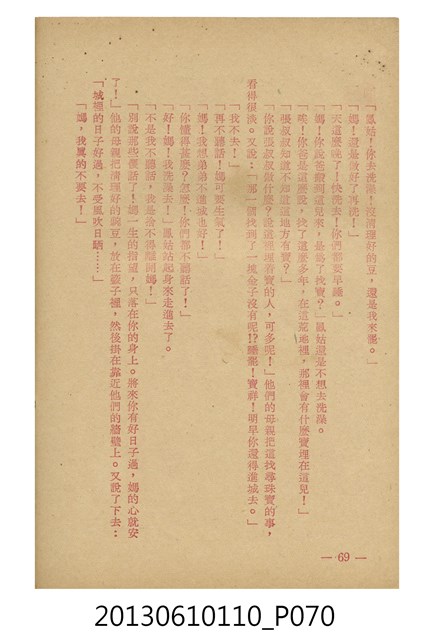 「鳳姑！你去洗澡！沒清理好的豆，還是我來罷。」
「媽！還是做好了再洗！」
「天這麼晚了！快洗去！你們都要早睡。」
「媽！你說爸爸搬到這兒來，是為了找寶？」鳳姑還是不想去洗澡。
「唉！你爸是這麼說，找了這麼多年，在這荒地裡，那裡會有什麼寶埋在這兒！」
「張叔叔知道不知道這地方有寶？」
看得很淡。又說：「那一個找到了一塊金子沒有呢！？睡罷！寶祥！明早你還得進城去。」
「我不去！」
「再不聽話！媽可要生氣了！」
「媽！我想弟弟不進城也好！」
「你懂得甚麼？怎麼！你們都不聽話了！」
「好！媽！我洗澡去！」鳳姑站起身來走進去了。
「不是我不聽話，我是捨不得離開媽！」
「別說那些傻話了！媽一生的指望，只落在你的身上。將來你有好日子過，媽的心就安
了！」他的母親把清理好的豌豆，放在籃子裡，然後掛在靠近他們的牆壁上。又說了下去：
「城裡的日子好過，不受風吹日晒……」
「媽，我真的不要去！」
— 69 —
20130610110_P070